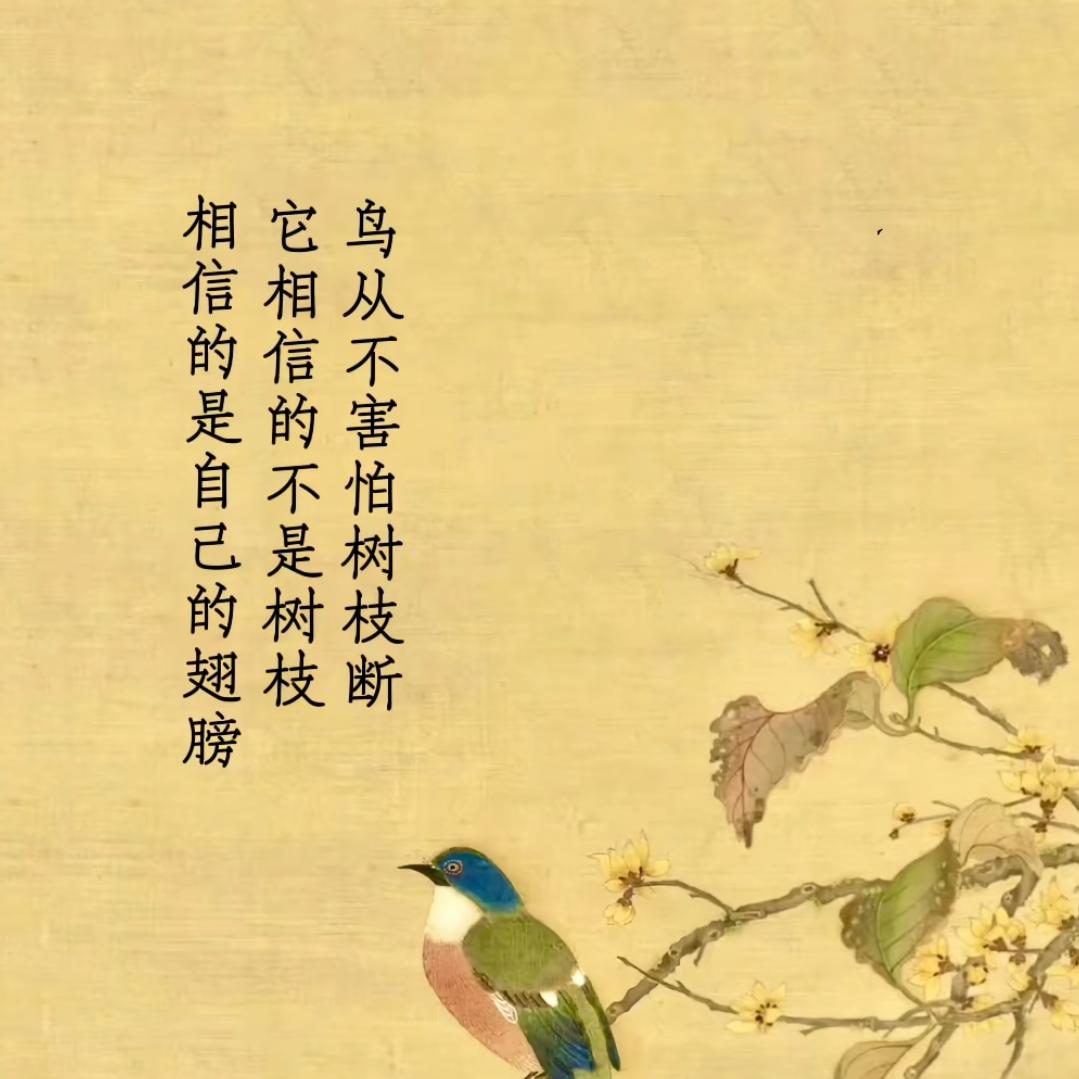 鸟从不害怕树枝断
它相信的不是树枝
相信的是自己的翅膀